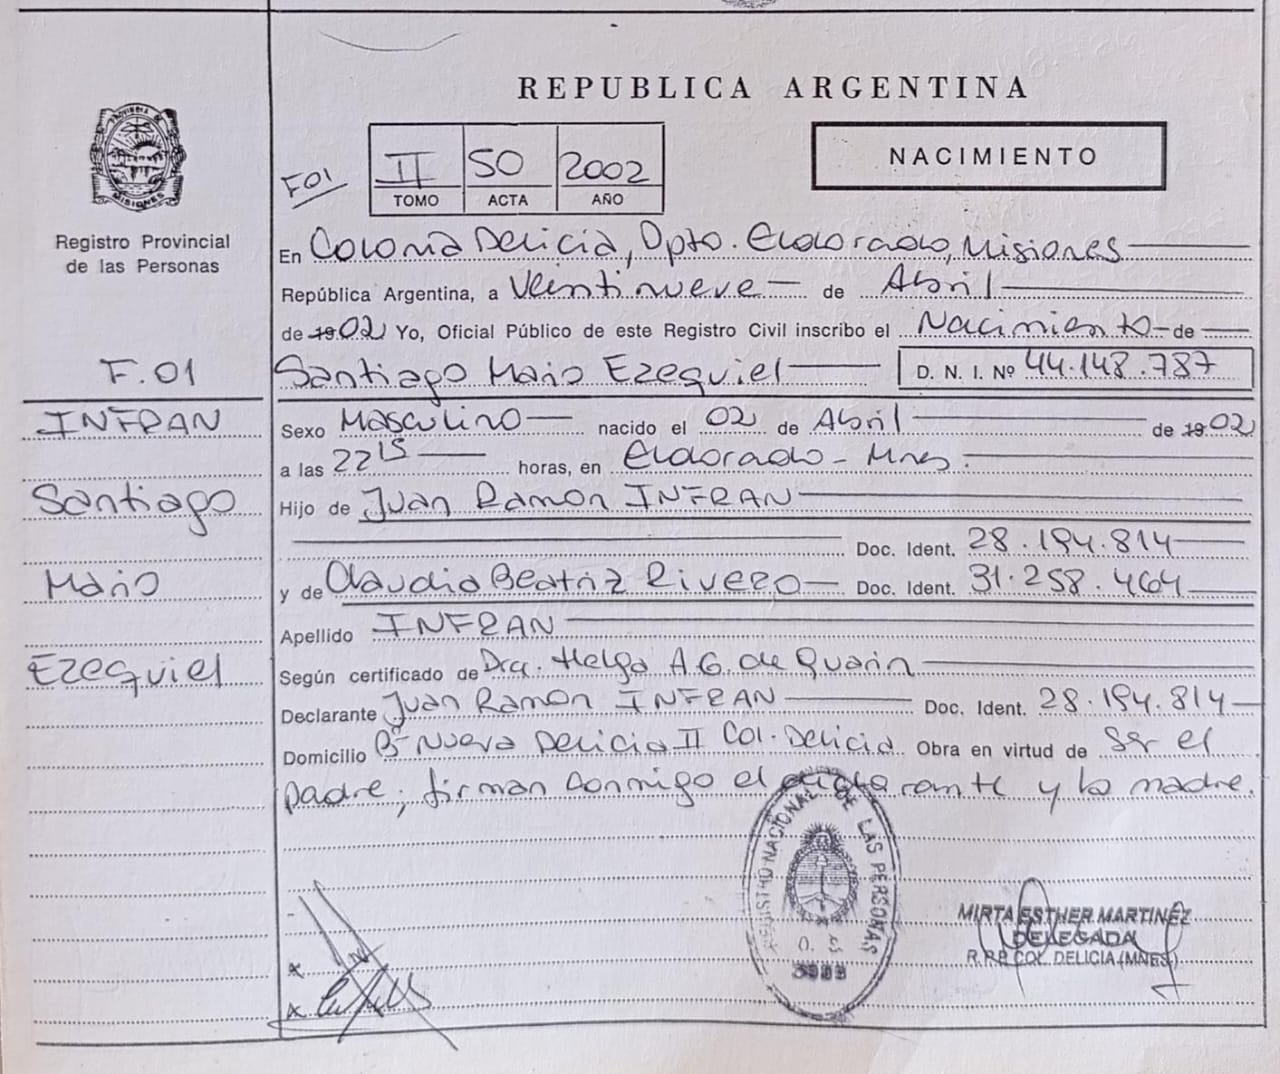 REPUBLICA ARGENTINA
PROVINCIA DE
MISIONES
Registro Provincial
de las Personas
F01
II 50 2002
TOMO ACTA AÑO
NACIMIENTO
En Colonia Delicia, Dpto. Eldorado, Misiones
República Argentina, a Veintinueve de Abril
de 1902 Yo, Oficial Público de este Registro Civil inscribo el Nacimiento de
F.01
Santiago Mario Ezequiel D. N. I. Nº 44.148.787
INFRAN
Sexo Masculino nacido el 02 de Abril de 1902
a las 22 15 horas, en Eldorado - Mnes.
Santiago
Hijo de Juan Ramon INFRAN
Doc. Ident. 28.194.814
Mario
y de Claudia Beatriz Rivero Doc. Ident. 31.258.464
Apellido INFRAN
Ezequiel
Según certificado de Dra. Helga A.G. de Quarin
Declarante Juan Ramon INFRAN Doc. Ident. 28.194.814
Domicilio Bº Nueva Delicia II Col. Delicia Obra en virtud de ser el
padre; firman conmigo el declarante y la madre.
REGISTRO NACIONAL DE LAS PERSONAS
O. S.
MIRTA ESTHER MARTINEZ
DELEGADA
R.P.P. COL. DELICIA (MNES)